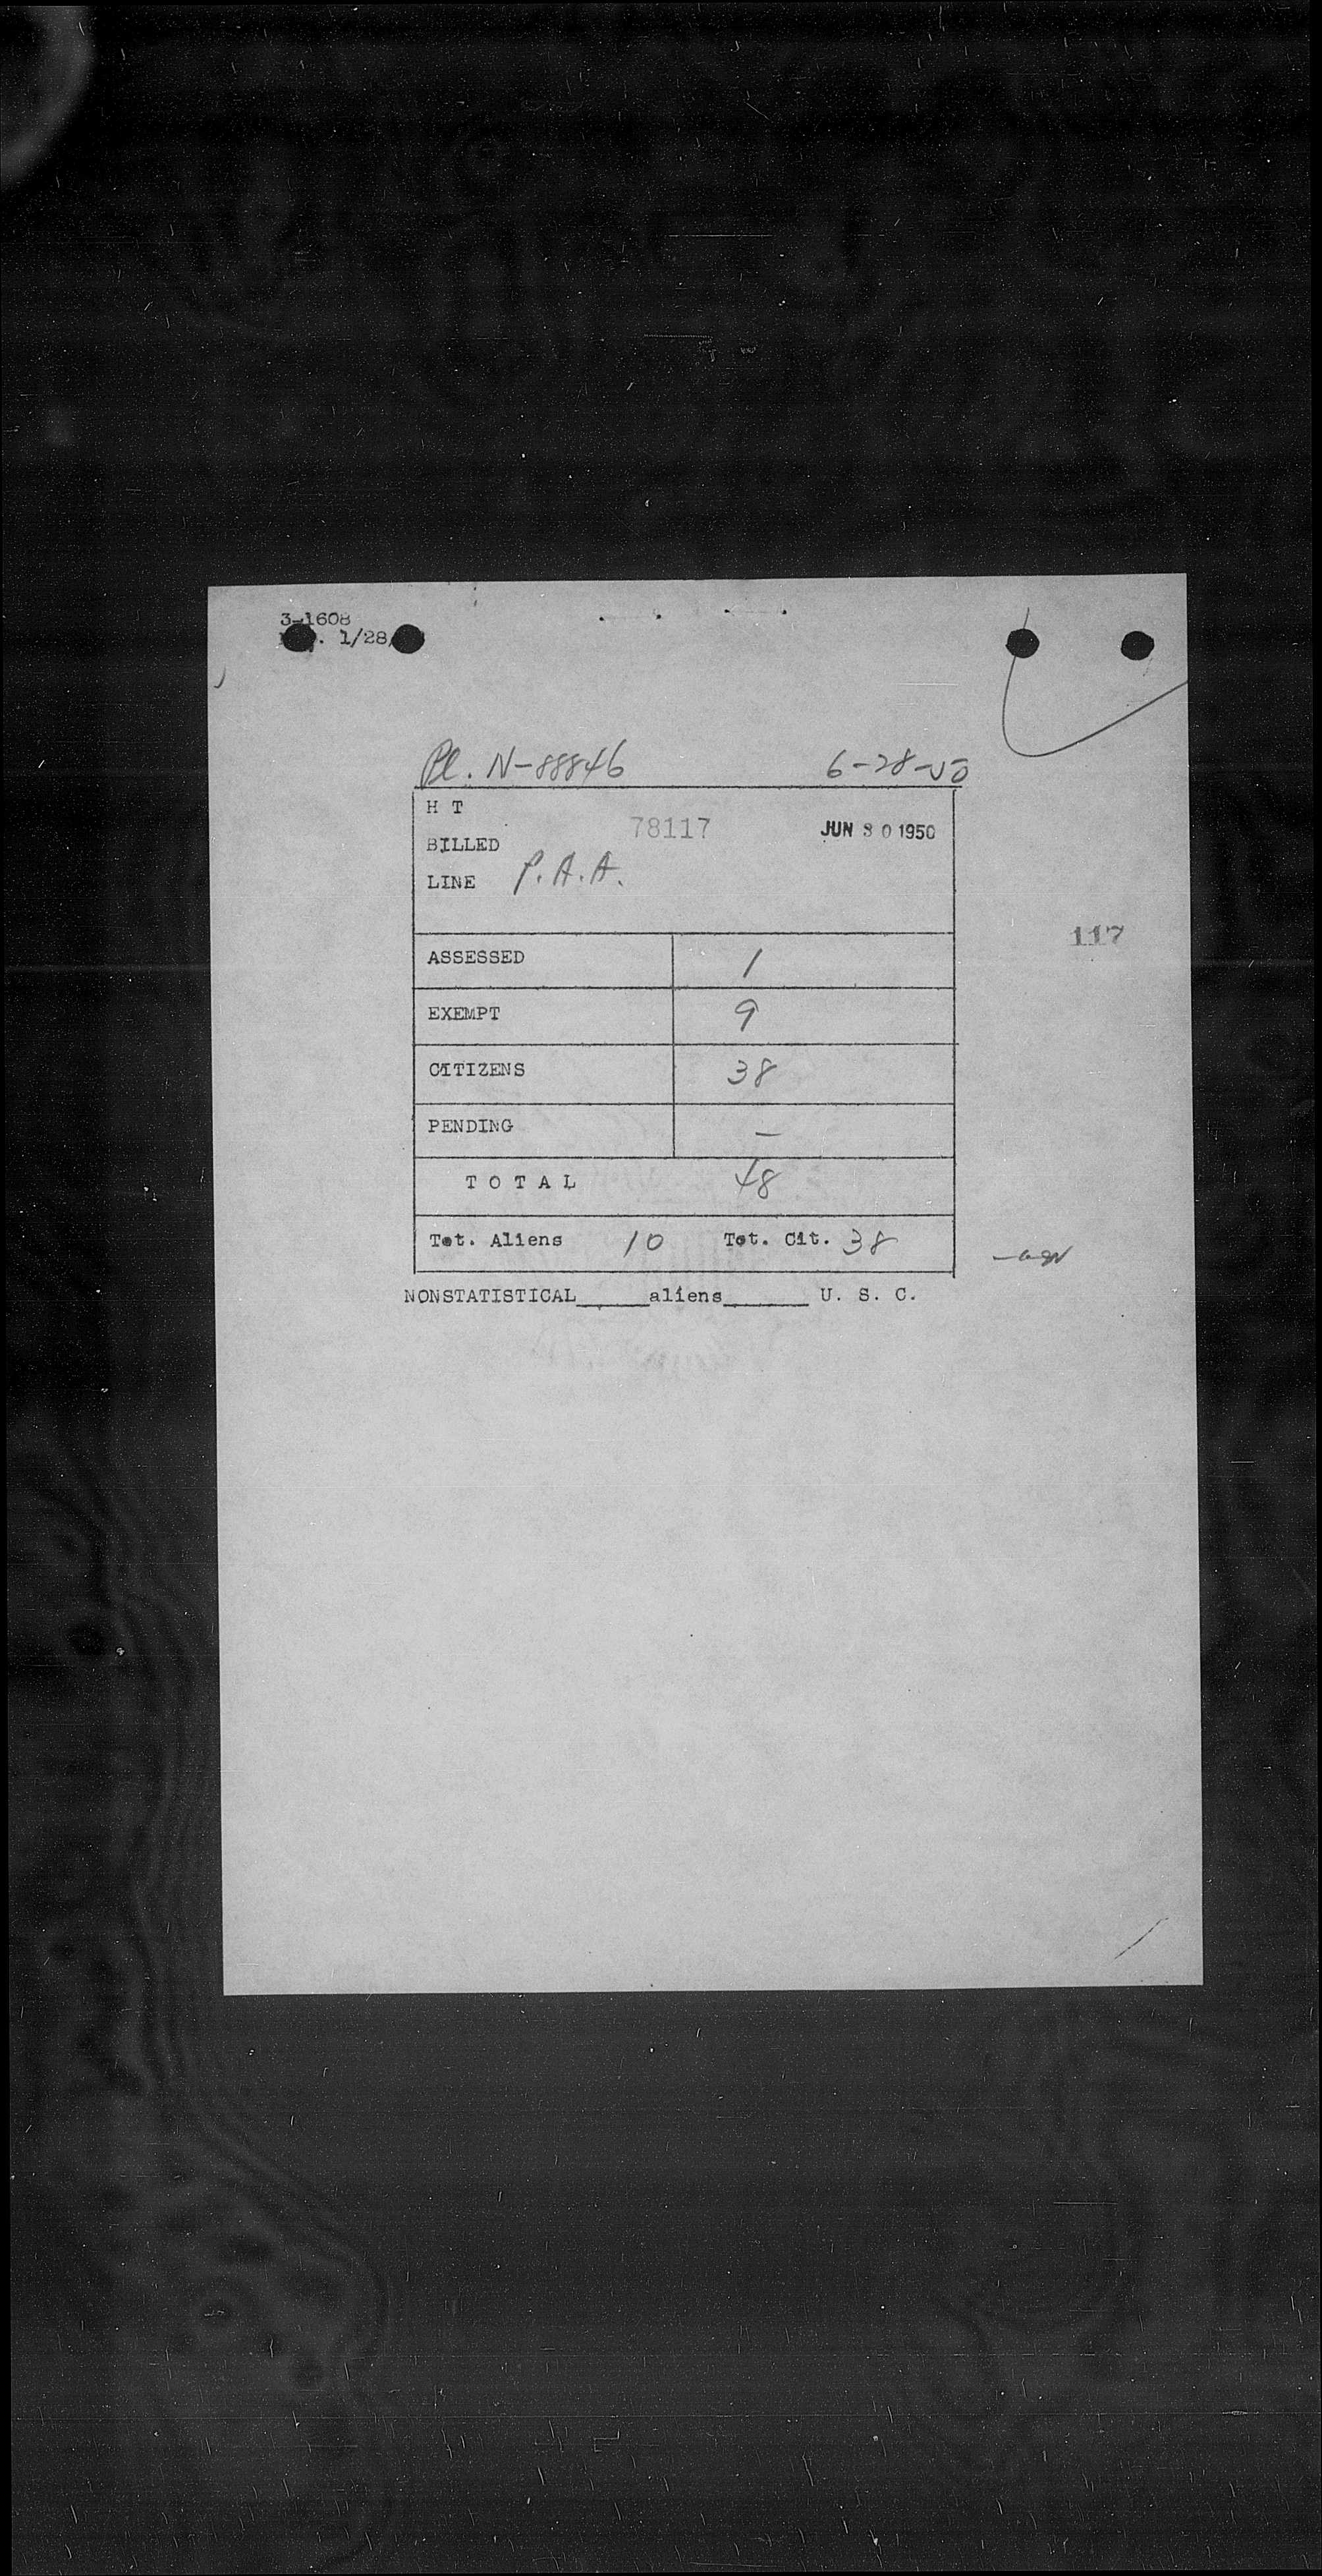 3-1608
1/28
Pl. N-88846 6-28-50
H T
78117 JUN 30 1950
BILLED
LINE P.A.A.
117
ASSESSED 1
EXEMPT 9
CITIZENS 38
PENDING —
T O T A L 48
Tot. Aliens 10 Tot. Cit. 38
NONSTATISTICAL______aliens_______ U. S. C.